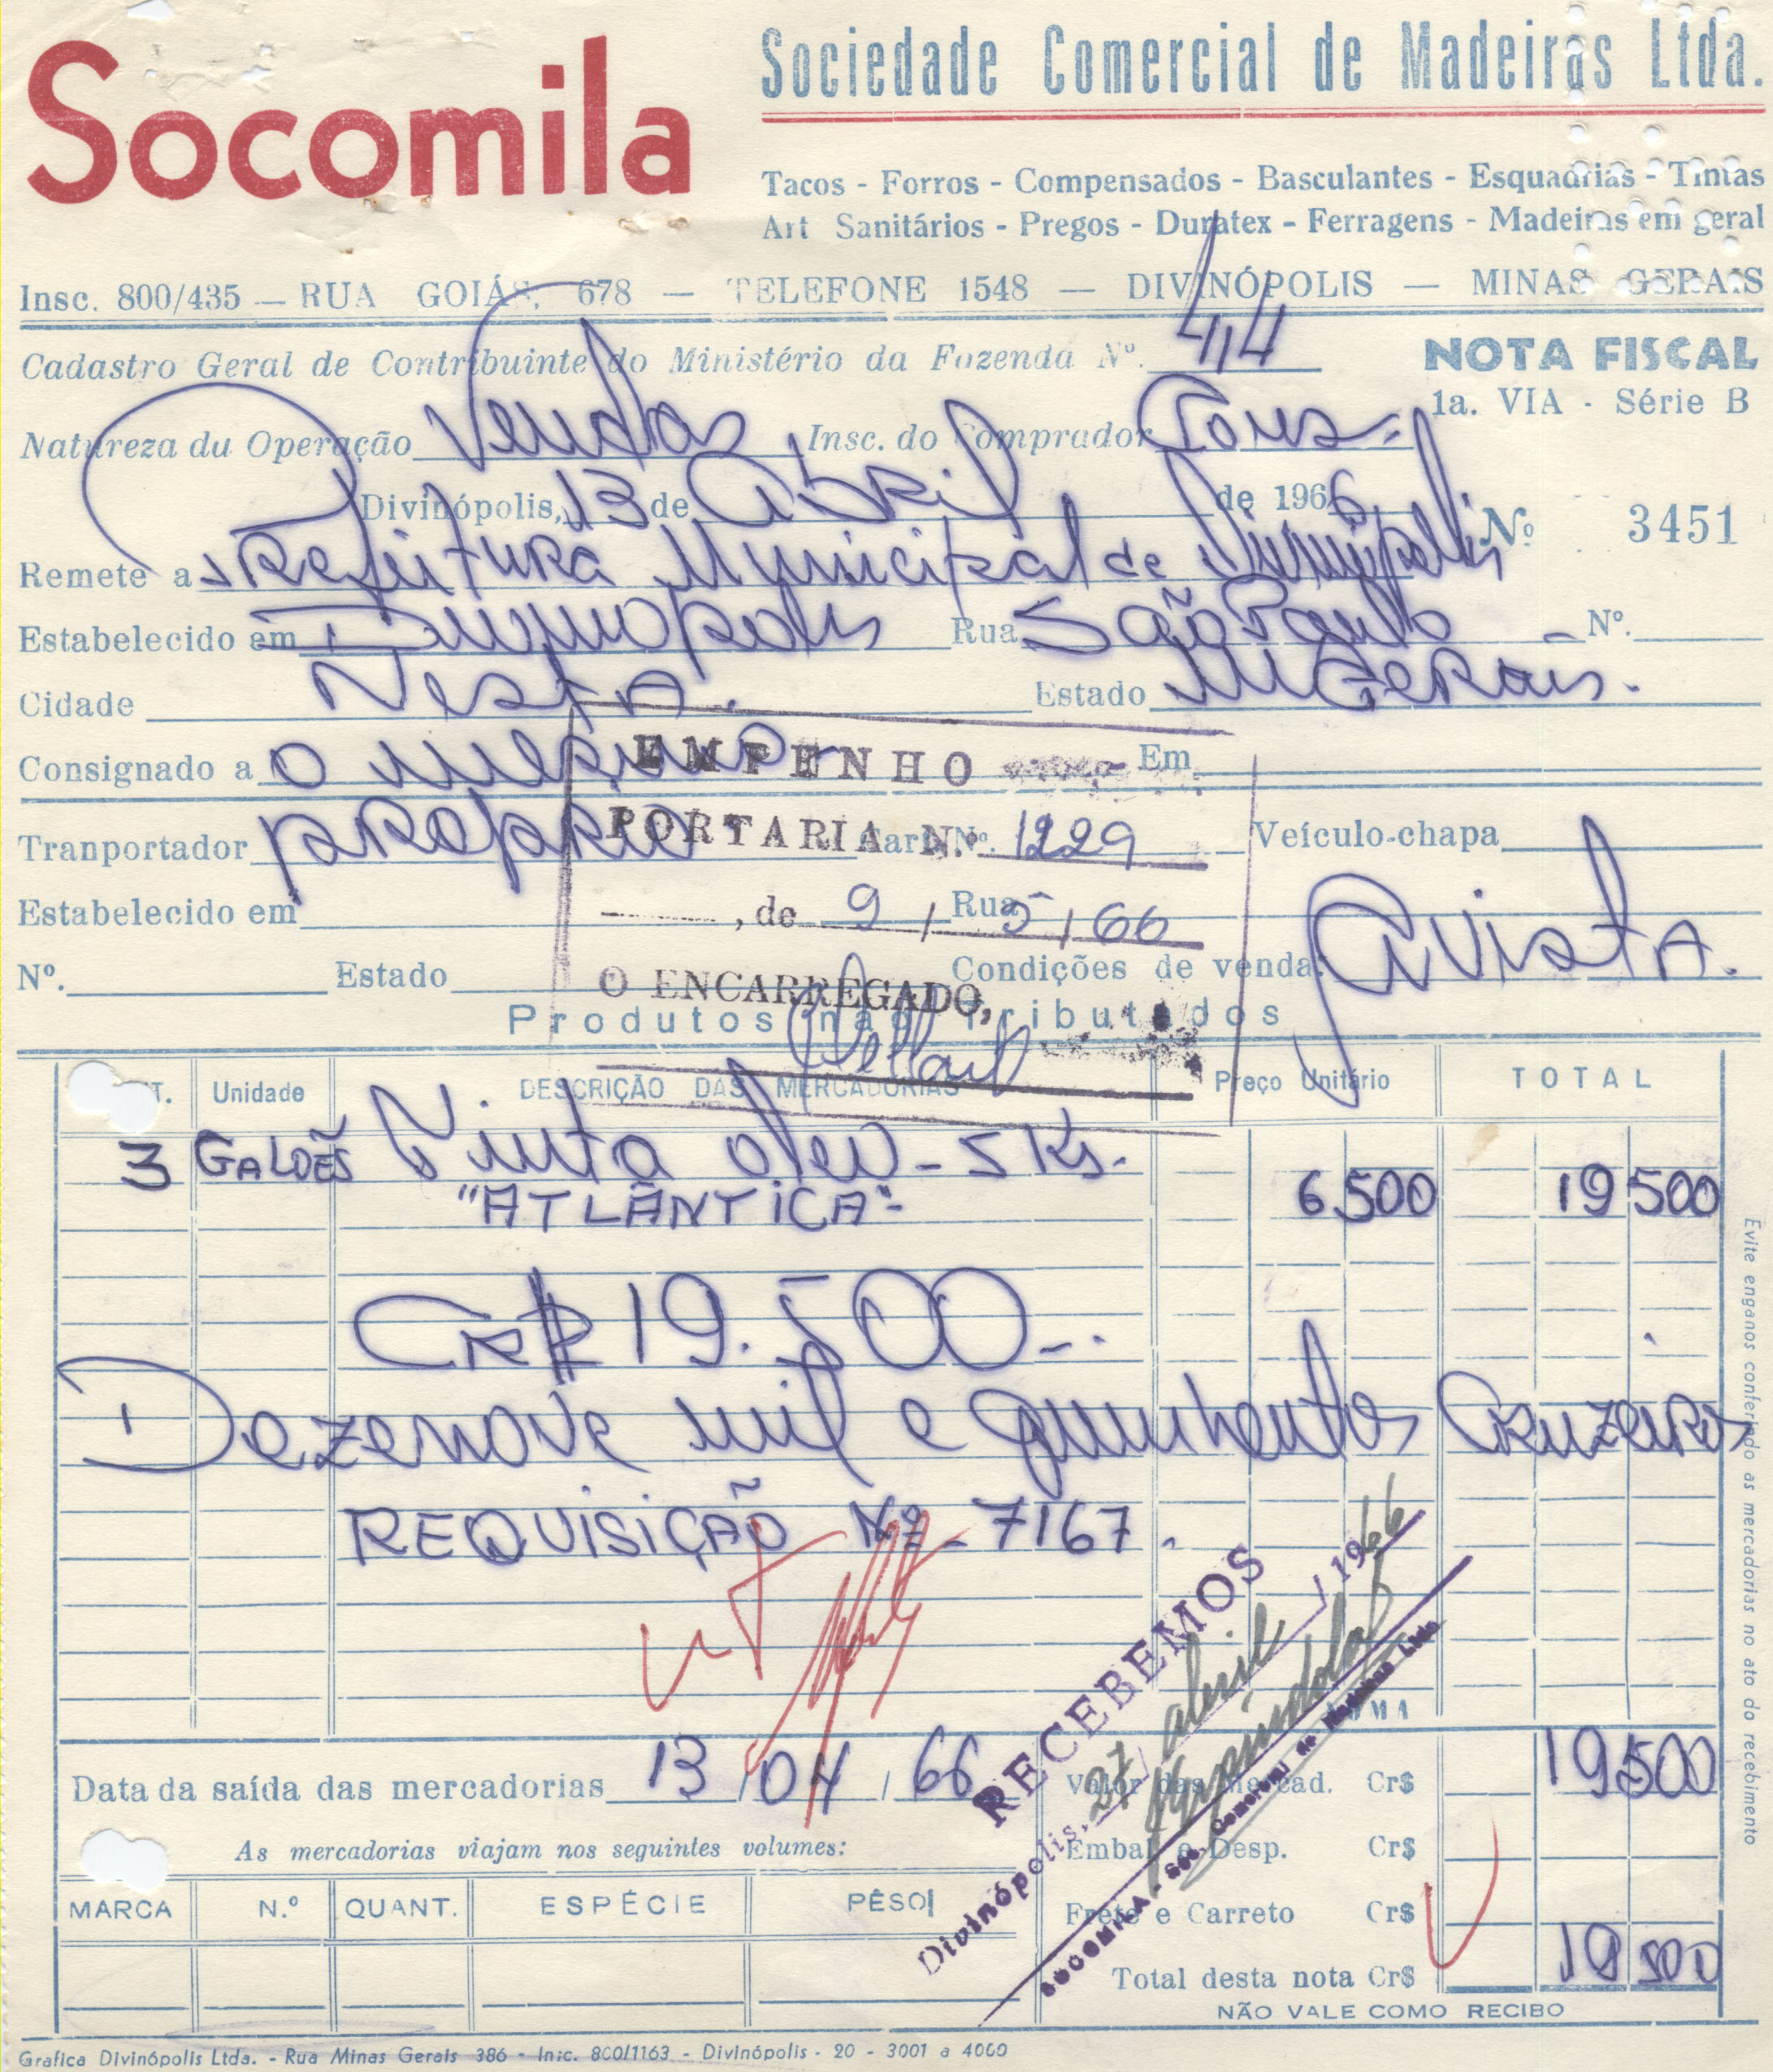 Socomila
Sociedade Comercial de Madeiras Ltda.
Tacos - Forros - Compensados - Basculantes - Esquadrias - Tintas
Art Sanitários - Pregos - Duratex - Ferragens - Madeiras em geral
Insc. 800/435 — RUA GOIÁS, 678 — TELEFONE 1548 — DIVINÓPOLIS — MINAS GERAIS
Cadastro Geral de Contribuinte do Ministério da Fazenda Nº.
NOTA FISCAL
1a. VIA - Série B
Natureza du Operação Vendas Insc. do Comprador Cons.
Divinópolis, 13 de Abril de 1966
Nº 3451
Remete a Prefeitura Municipal de Divinópolis
Estabelecido em Divinopolis Rua São Paulo - Nº.
Cidade Nesta. Estado M Gerais.
Consignado a o mesmo Em
EMPENHO
Tranportador proprio Carta Nº. Veículo-chapa
PORTARIA N.º 1229
Estabelecido em Rua
, de 9 / 5 / 66
Nº. Estado Condições de venda: Avista.
O ENCARREGADO,
Produtos não Tributados
T. Unidade DESCRIÇÃO DAS MERCADORIAS Preço Unitário TOTAL
3 GALOÊS Tinta oleo - 5 Ks.
"ATLÂNTICA" - 6.500 19 500
CR$ 19.500 -.
Dezenove mil e quinhentos Cruzeiros
REQUISIÇÃO Nº - 7167.
RECEBEMOS
Divinópolis, 27 / abril / 1966
SOCOMILA - Soc. Comercial de Madeiras Ltda
SOMA
Data da saída das mercadorias 13 / 04 / 66 Valor das Mercad. Cr$ 19500
As mercadorias viajam nos seguintes volumes: Embal. e Desp. Cr$
MARCA N.º QUANT. ESPÉCIE PÊSO Frete e Carreto Cr$
Total desta nota Cr$ 19 500
NÃO VALE COMO RECIBO
Evite enganos conferindo as mercadorias no ato do recebimento
Grafica Divinópolis Ltda. - Rua Minas Gerais 386 - Inic. 800/1163 - Divinópolis - 20 - 3001 a 4000